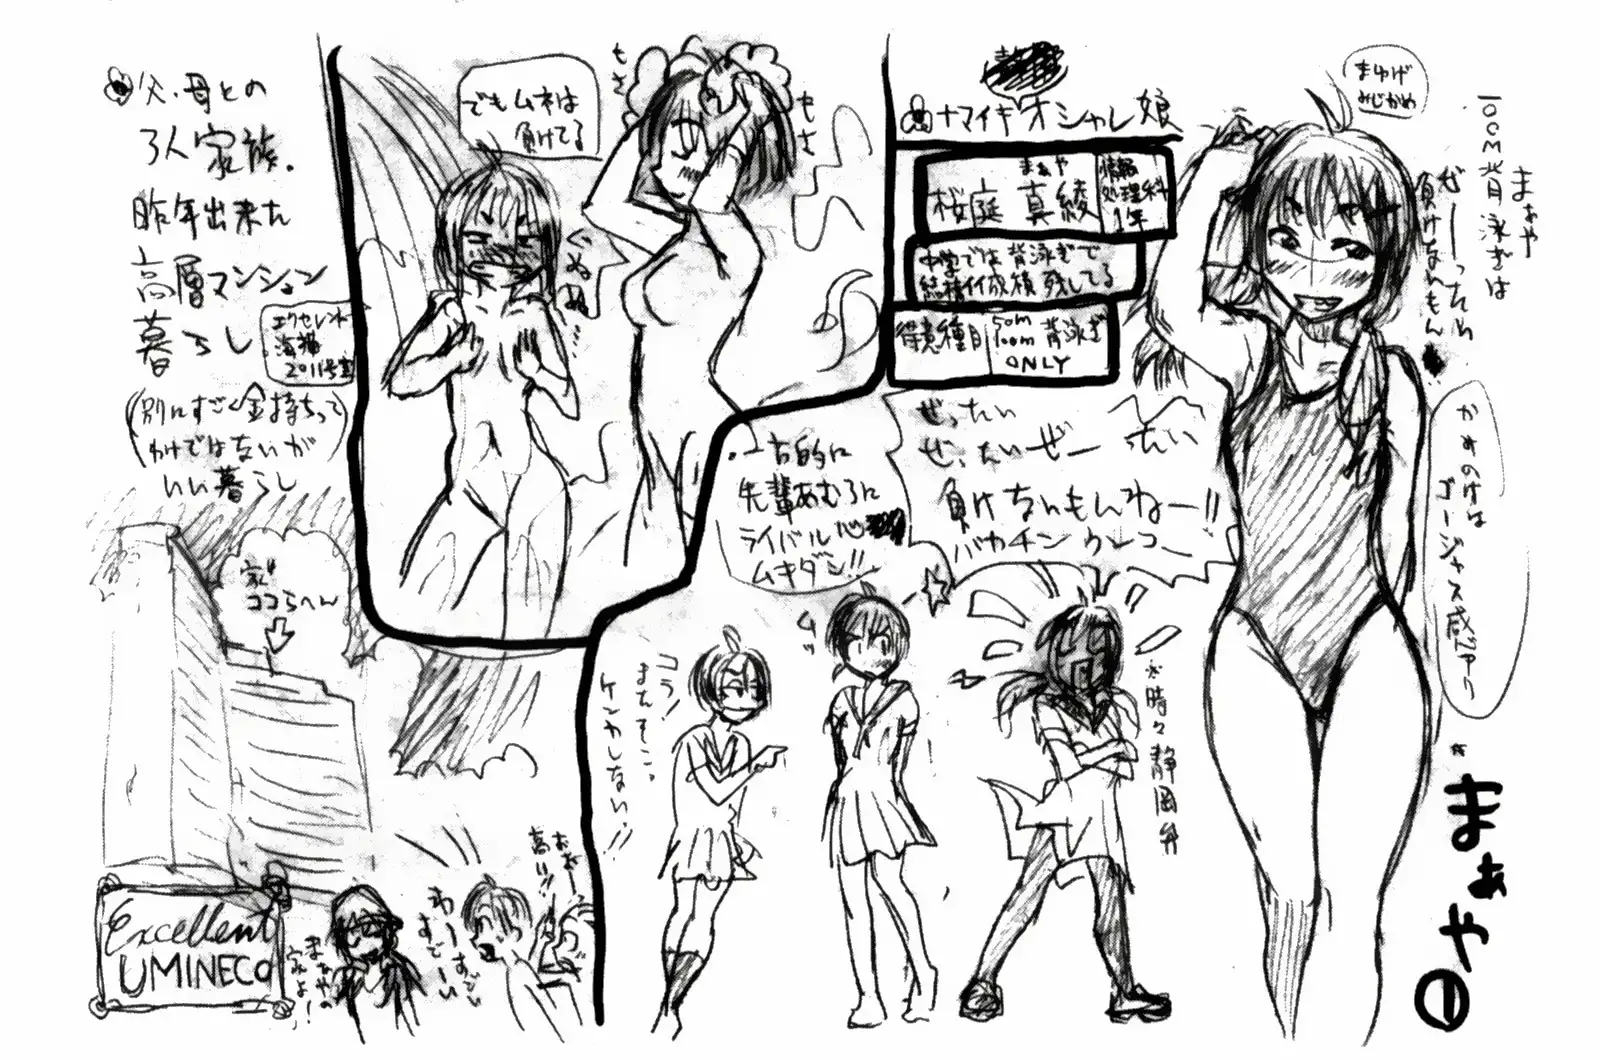 父、母との
3人家族。
昨年出来た
高層マンション
暮らし
エクセレント
海猫
2011号室
(別にすごく金持ちって
わけではないが
いい暮らし
家
ココらへん
Excellent
UMINECO
まぁやの
家よ!
わーすごい
すごーい
おおー
高いッ!!
でもムネは
負けてる
もさ
もさ
ぐぬぬ…
ナマイキオシャレ娘
まぁや
桜庭 真綾
情報
処理科
1年
中学では背泳ぎで
結構イイ成績残してる
得意種目
50m
100m背泳ぎ
ONLY
ぜったい
ぜったいぜーったい
負けないもんねー!!
一方的に
先輩あむろに
ライバル心
ムキダシ!!
コラ!
またそこっ
ケンカしないっ!!
ムッ
※時々静岡弁
まゆげ
みじかめ
100m背泳ぎは
まぁや
ぜーったい
負けないもん
かみのけは
ゴージャス感アリ
まぁや
①